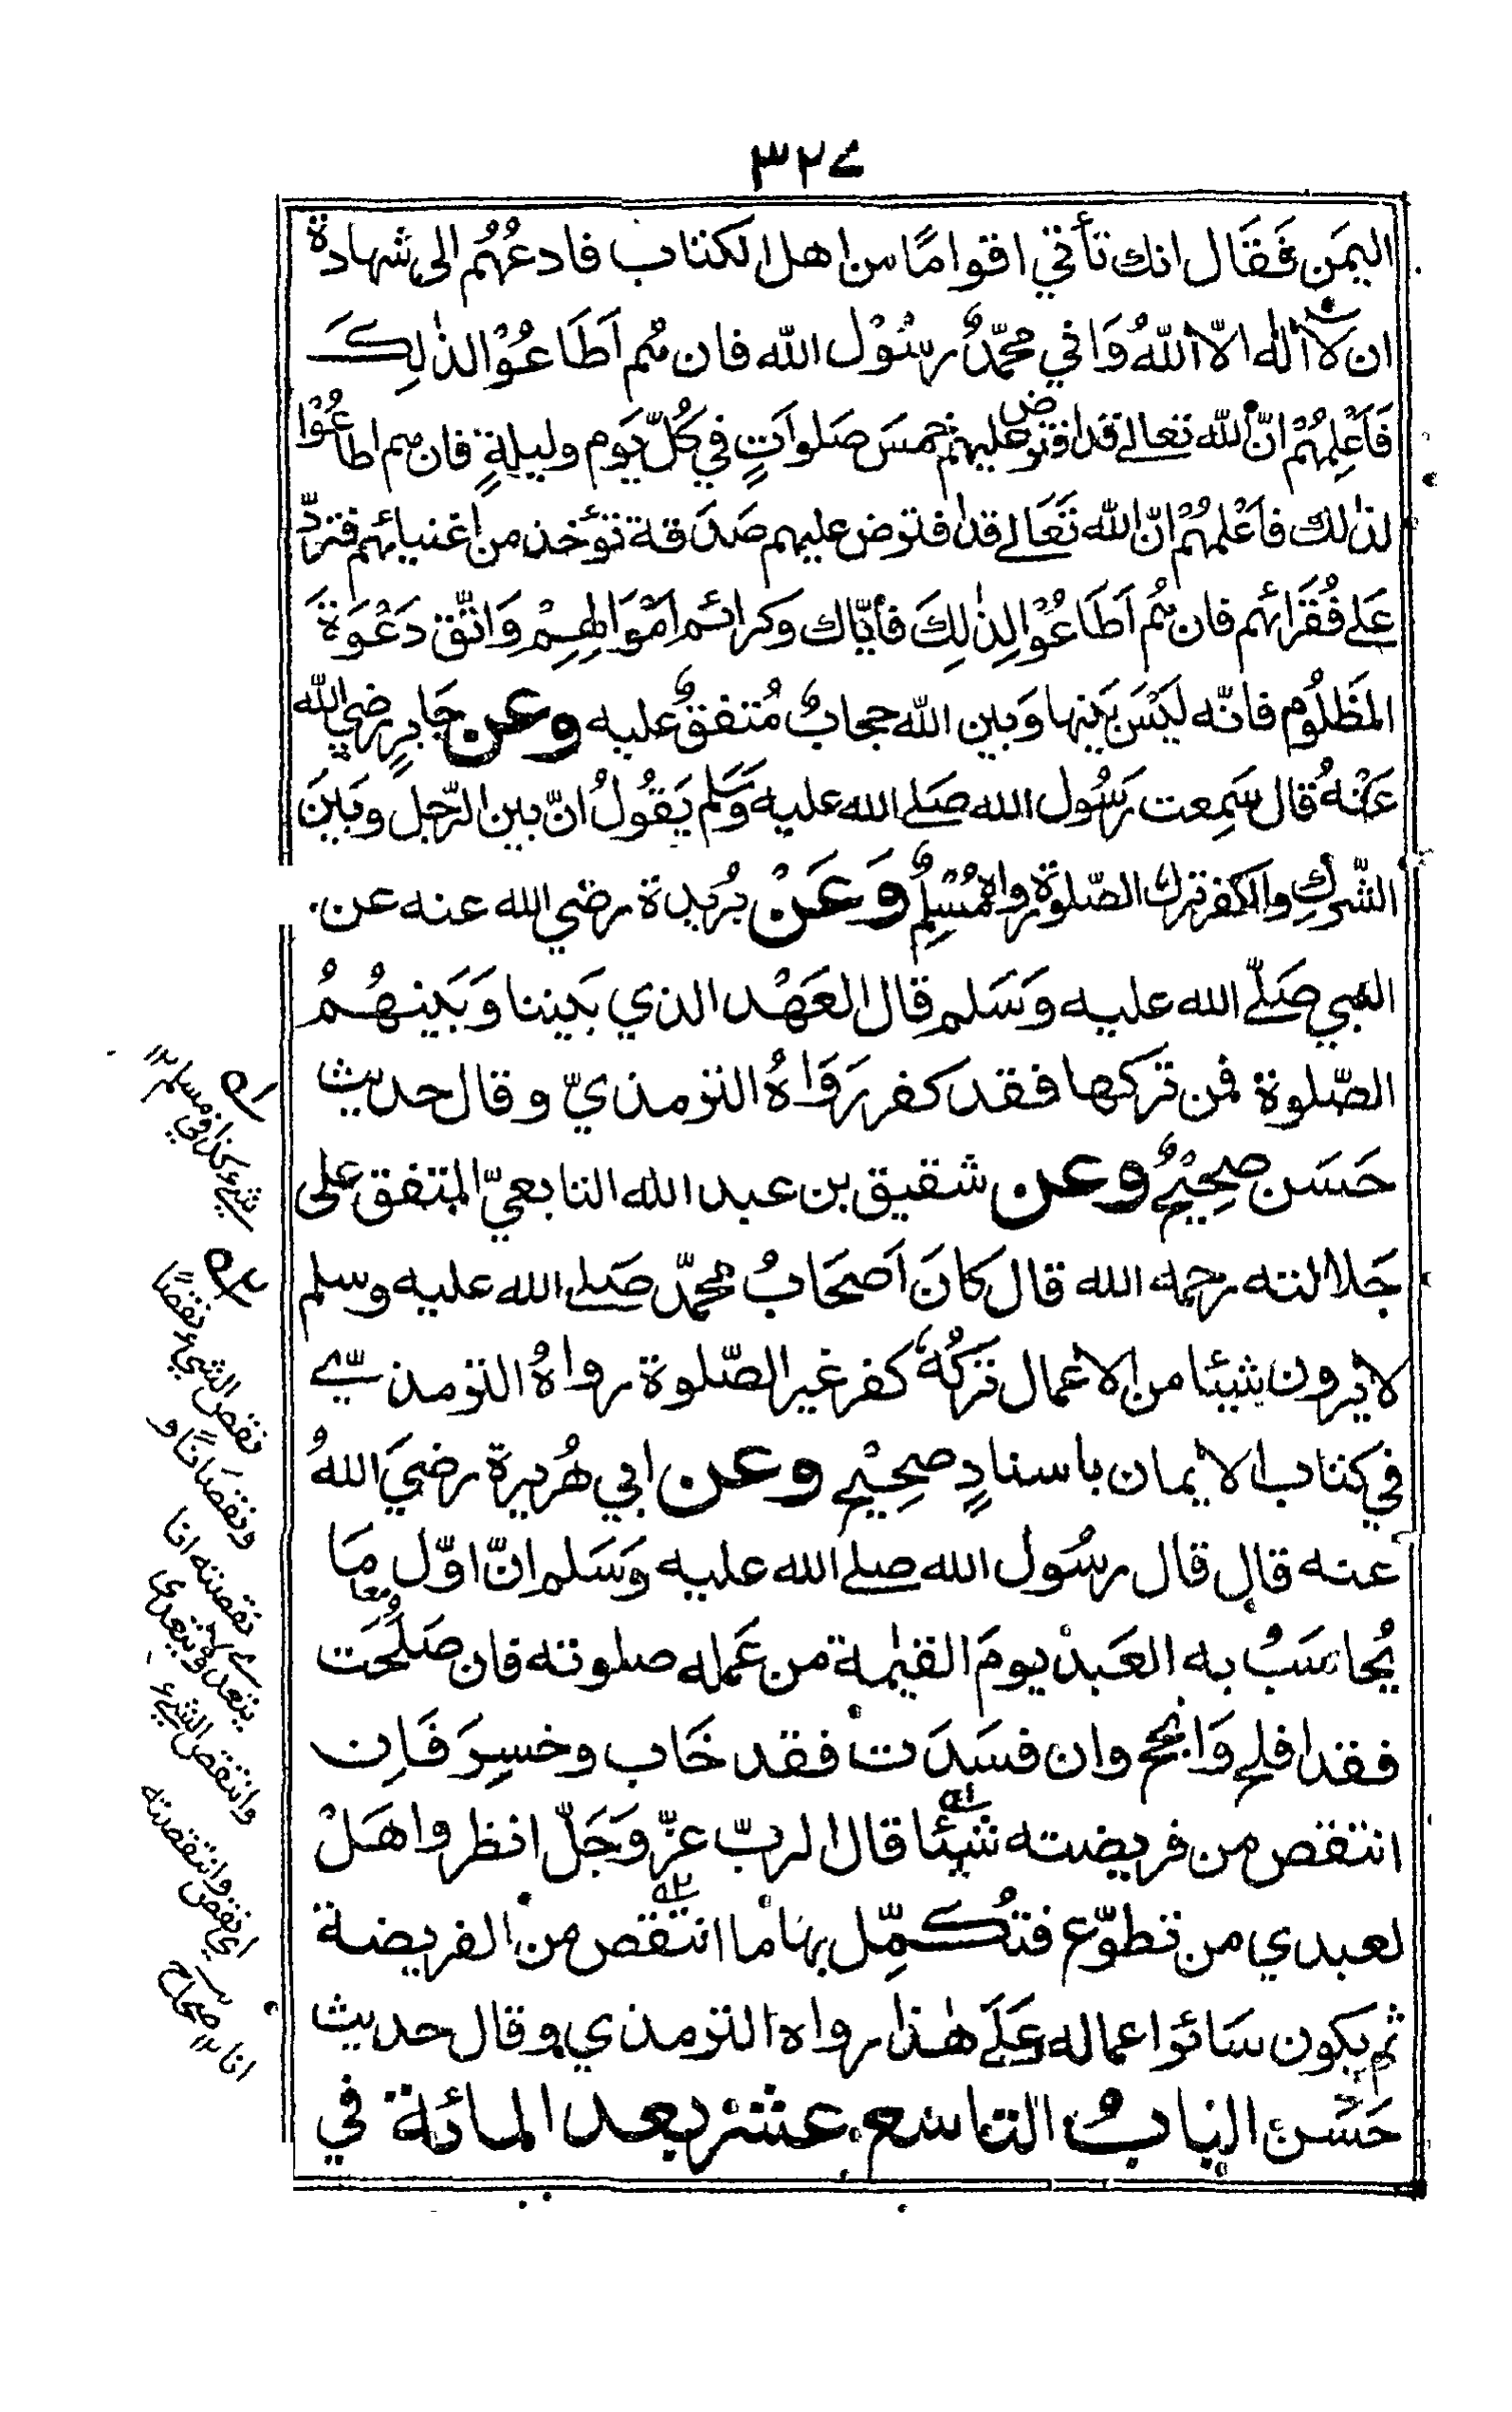 ٣٢٧
اليمَن فَقَال انك تأتي اقوامًا من اهل الكتاب فادعُهُم الى شهادة
ان لا اله الّا اللّهُ وَاني محمّدٌ رسُوْل اللّه فان هُم اَطَاعُوْا لذٰلِكَ
فَاَعْلِمْهُمْ انّ اللّه تعالے قد افترض عليهم خمسَ صَلواتٍ في كُلّ يَوم وليلةٍ فان هم اطاعُوْا
لذٰلك فاَعْلمْهُمْ انّ اللّه تَعَالے قد افترض عليهم صَدَقة تؤخذ من اغنيائهم فتردّ
عَلے فُقَرَائهم فان هُم اَطَاعُوْا لِذٰلِكَ فأيّاك وكرائم اَمْوَالهِمْ وَاتّق دَعْوَةَ
المَظْلُوم فانّه لَيْسَ بَينها وَبين اللّه حجابٌ مُتفقٌ عليه وعن جَابرٍ رضي اللّه
عَنْهُ قال سَمِعت رَسُول الله صَلے الله عليه وَسَلم يَقُولُ انّ بين الرّجل وبَينَ
الشّركِ والكفر تركَ الصّلوة رواه مُسْلِمٌ وَعَنْ بُرَيدة رضي الله عنه عن
النبي صَلّے الله عليه وَسَلم قال العَهْد الذي بَيننا وَبَينهُمُ
الصّلوة فمن تركها فقد كفر رَوَاهُ الترمذيّ وقال حديث
حَسَن صحِيْحٌ وعن شقيق بن عبد الله التابعيّ المتفق على
جَلالته رحمه الله قال كانَ اَصْحَابُ محمّد صَلے الله عليه وسلم
لا يَرون شيئا من الاعمال تركُهُ كفر غير الصّلوة رواهُ الترمذيّ
في كتاب الايمان باسنادٍ صحِيْحٍ وعن ابي هُريرة رضيَ اللهُ
عنه قال قال رسُول الله صلے الله عليه وَسَلم انّ اوّل مَا
يُحاسَبُ به العَبدُ يومَ القيٰمة من عَمله صلوته فان صَلُحَت
معا
فقد افلح وَانجح وان فسَدَت فقد خَاب وخسِرَ فَاِن
انتقص من فريضته شيئا قال الربّ عزّ وَجَلّ انظروا هَلْ
لعبدي من تطوّع فتُكمِّل بها ما انتقص من الفريضة
ثم يكون سَائر اعماله عَلَے هٰذا رواه الترمذي وقال حديث
حَسَن البابُ التاسع عشر بعد المائة في
شيء كذا في مسلم
نقص الشيء نقصًا
ونقصَانًا و
نقصته انا
يتعدى ولا يتعدى
وانتقص الشيء
وانتقصته
اي نقص
انا صحاح